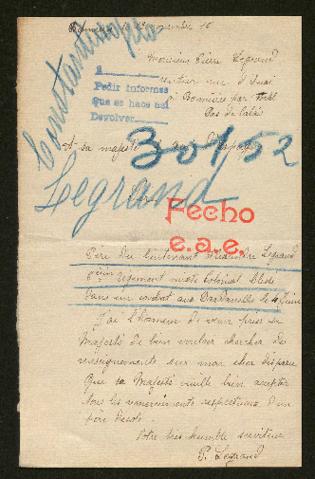 Monsieur Pierre Legrand
à Bonnières par
Pas de Calais
Constantinopla
á
Pedir informes
que se hace así
Devolver
A sa majesté
301/52
Legrand
Fecho
e.a.e.
Père du lieutenant Legrand
régiment mixte Colonial blessé
dans un combat aux Dardanelles le 4 juin
J'ai l'honneur de venir prier sa
Majesté de bien vouloir chercher des
renseignements sur mon cher disparu
Que sa Majesté veuille bien accepter
tous les remerciements respectueux d'un
père désolé
Votre très humble serviteur
P. Legrand